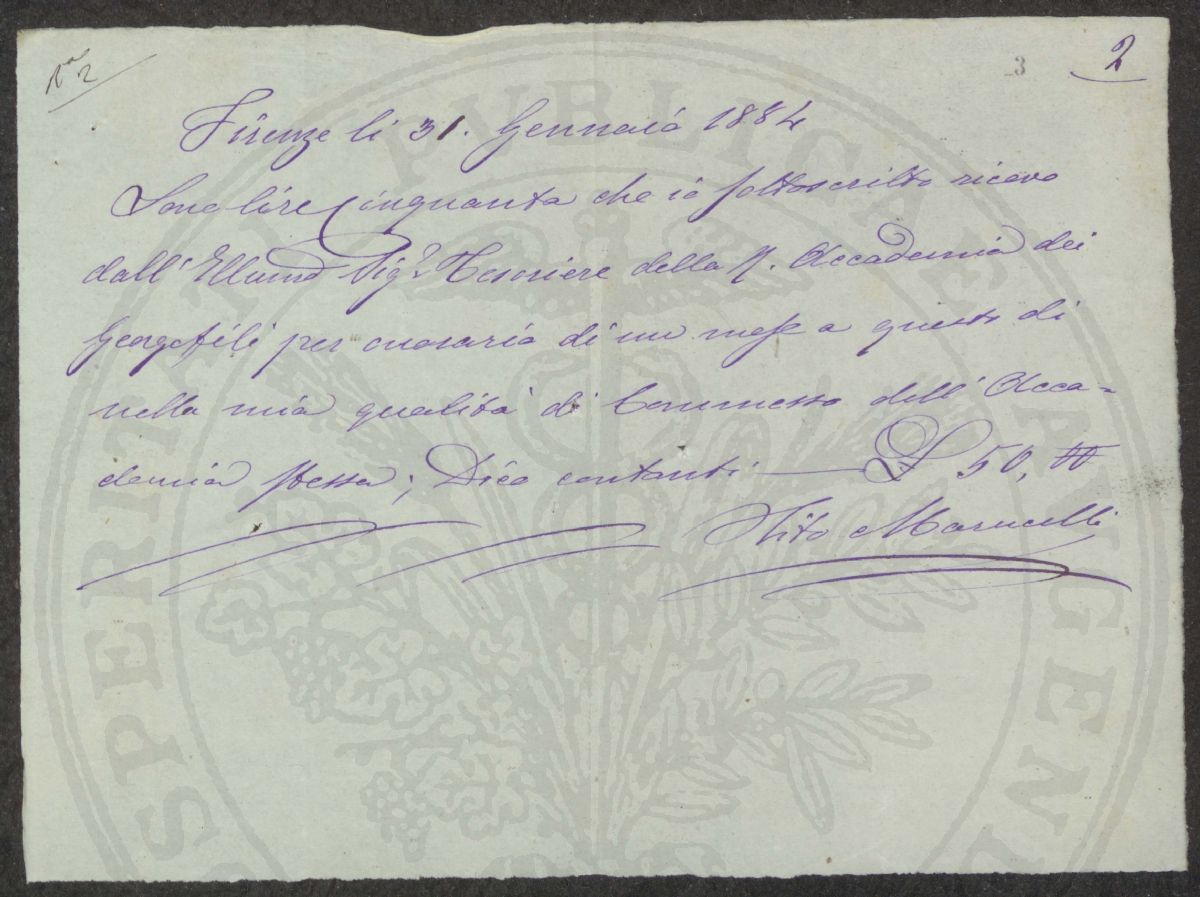 N° 2
3
2
Firenze li 31. Gennaio 1884
Sono lire Cinquanta che io sottoscritto ricevo
dall' Illumo Sigr Tesoriere della R. Accademia dei
Georgofili per onorario di un mese a questo dì
nella mia qualità di Commesso dell' Acca=
demia stessa; Dico contanti — £ 50, 00
Tito Marucelli
PROSPERITATI PUBLICAE AUGEND